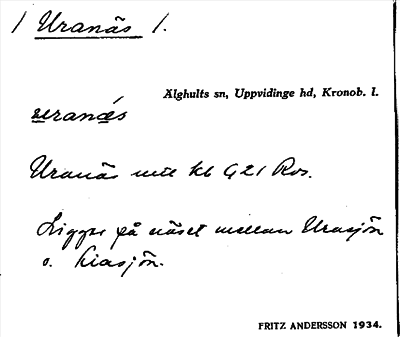 / Uranäs /.
Älghults sn, Uppvidinge hd, Kronob. l.
uranäs
Uranäs mtl kb G 21 Ros.
Ligger på näset mellan Urasjön
o. Kiasjön.
FRITZ ANDERSSON 1934.